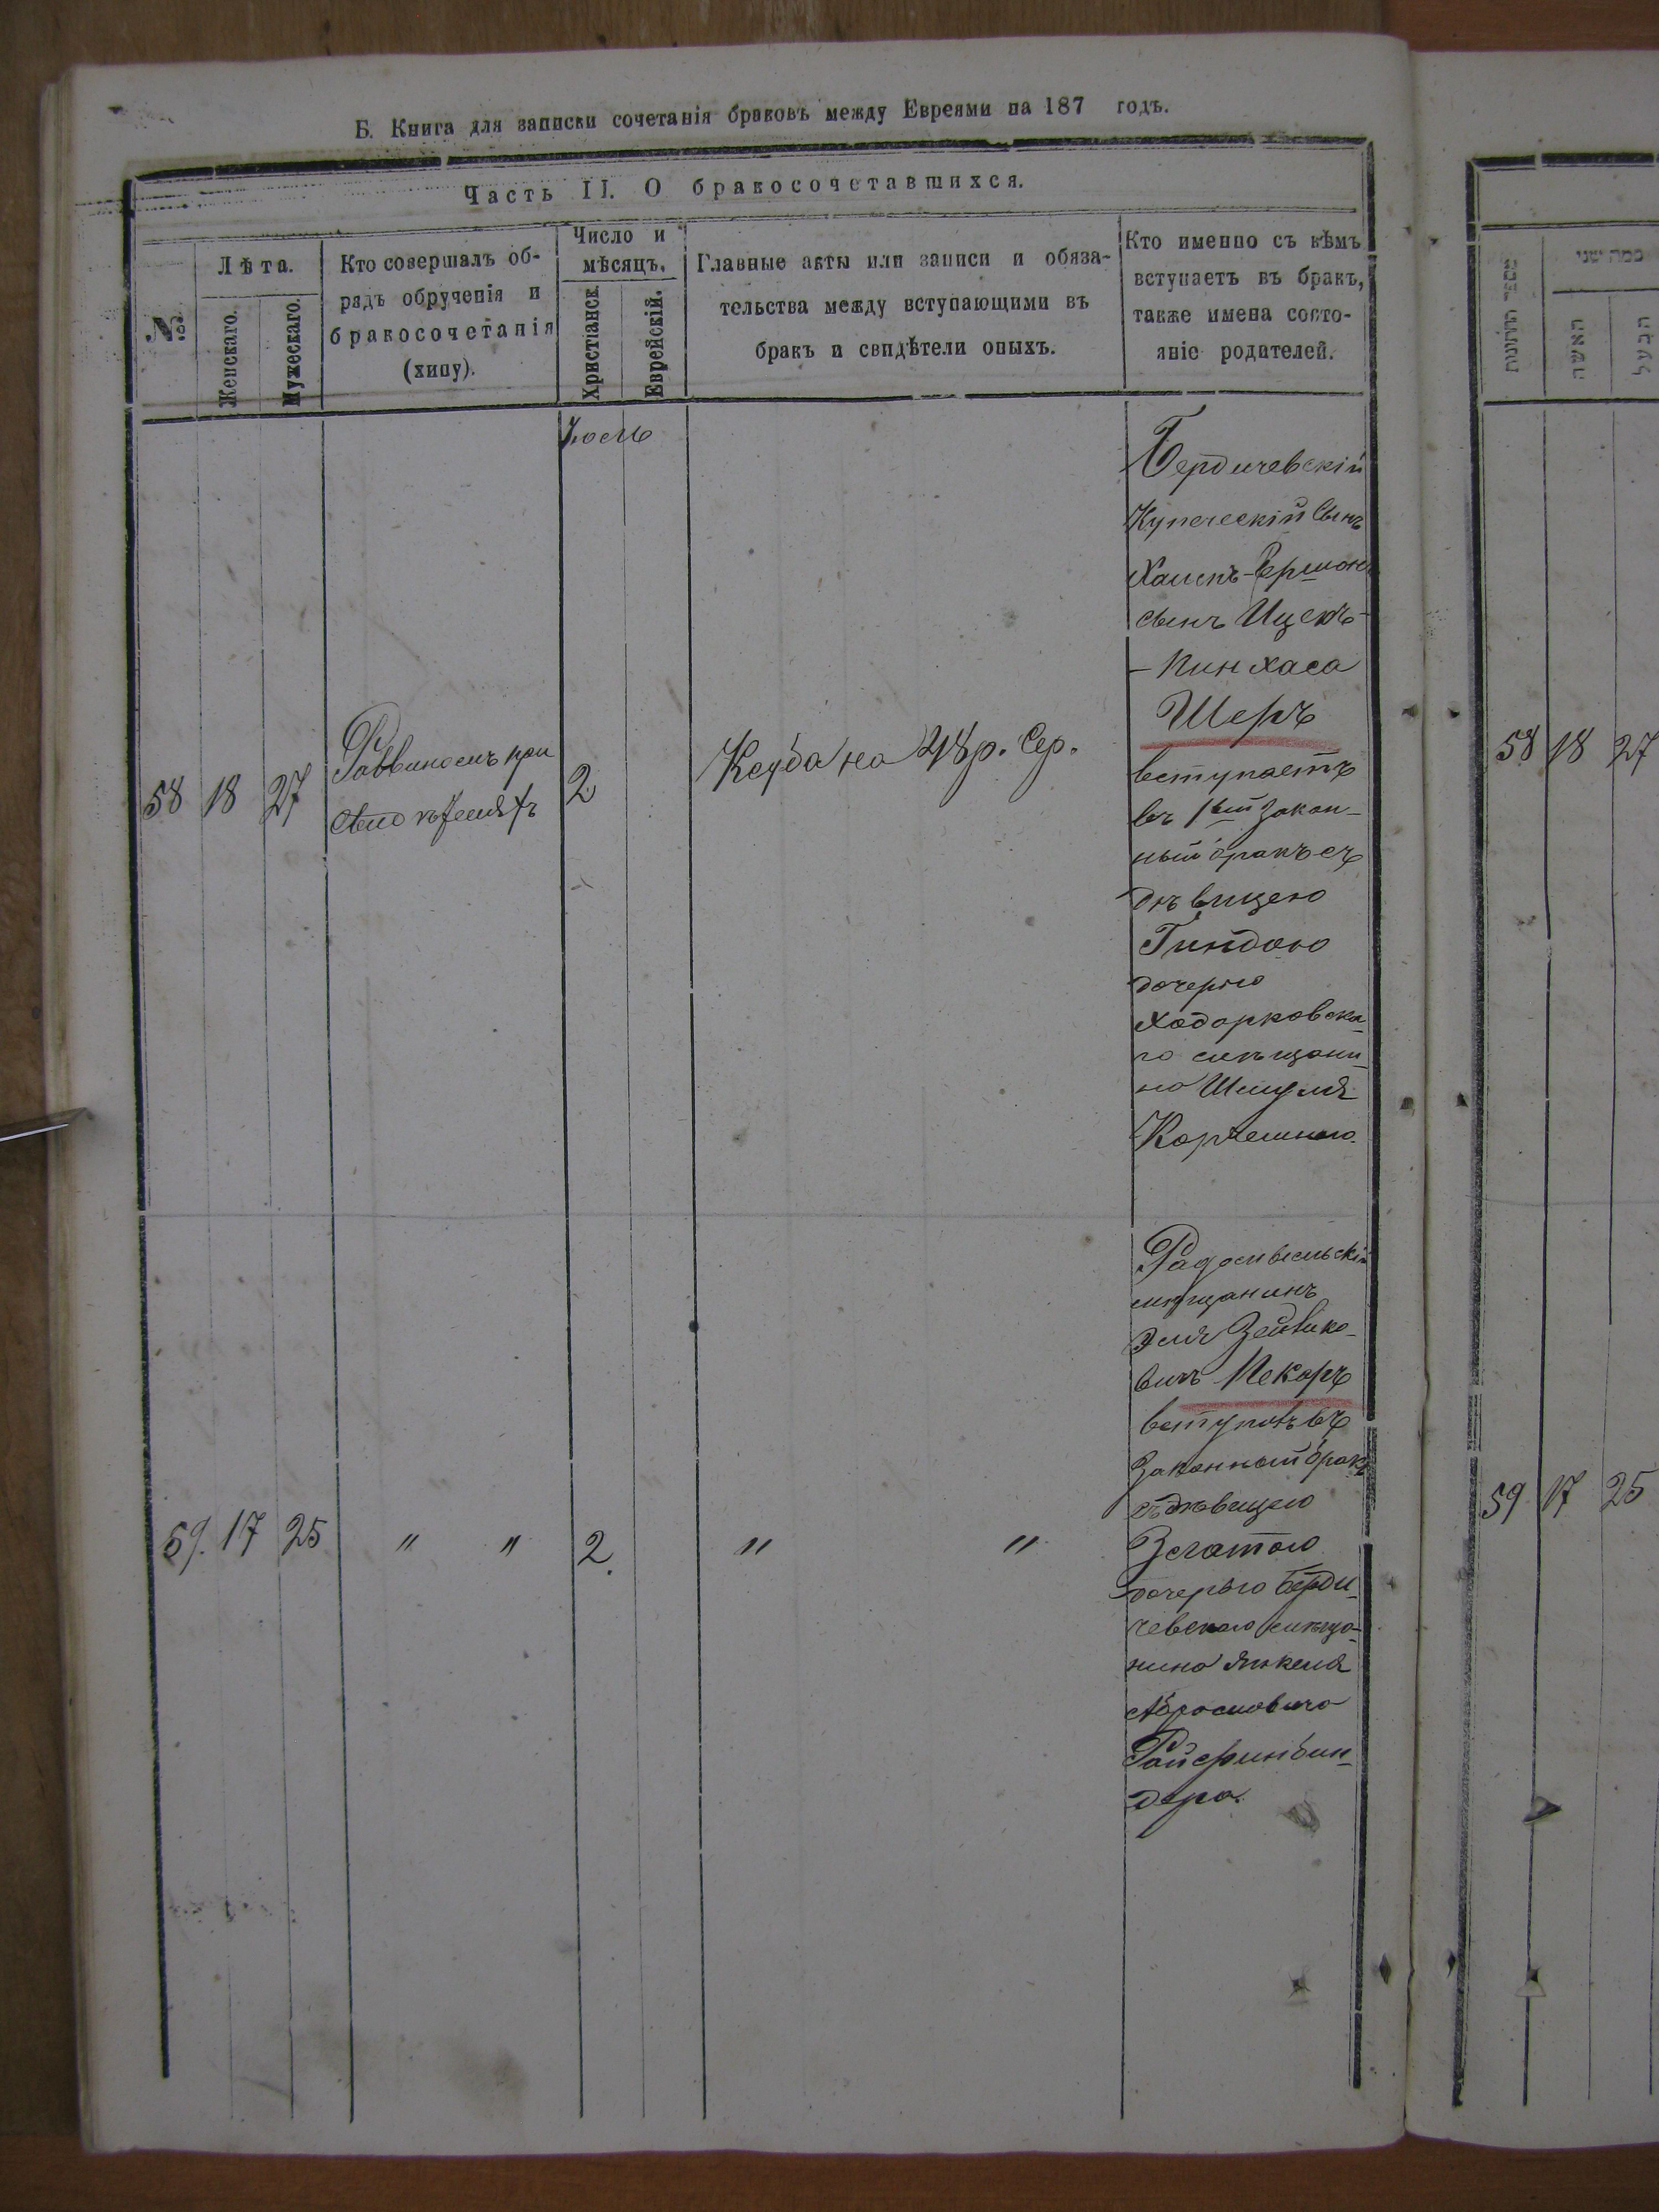 Б. Книга для записки сочетанія браковъ между Евреями на 187 годъ.
Часть II. О бракосочетавшихся.
№
Лѣта.
Женскаго.
Мужескаго.
Кто совершалъ об-
рядъ обрученія и
бракосочетанія
(хипу).
Число и
мѣсяцъ.
Христіанск.
Еврейскій.
Главные акты или записи и обяза-
тельства между вступающими въ
бракъ и свидѣтели оныхъ.
Кто именно съ кѣмъ
вступаетъ въ бракъ,
также имена состо-
яніе родителей.
58
18
27
Раввиномъ при
2
Ксуба на 48 р. Сер.
Бердичевскій
Купеческій Сынъ
Хаимъ-Гершонъ
сынъ Ицекъ-
-Пинхаса
Шеръ
вступаетъ
въ 1ый закон-
ный бракъ съ
дѣвицею
Гиндою
дочерью
Ходорковска-
го мѣщани-
на Шмуля
59.
17
25
" "
2.
" "
Радомысльскій
мѣщанинъ
Эля Зейлико-
вичъ Пекаръ
вступилъ въ
законный бракъ
съ дѣвицею
Златою
дочерью Берди-
чевскаго мѣща-
нина Янкеля
Абрамовича
дера.
מספר החתונות
כמה שני
האשה
הבעל
58
18
27
59
17
25